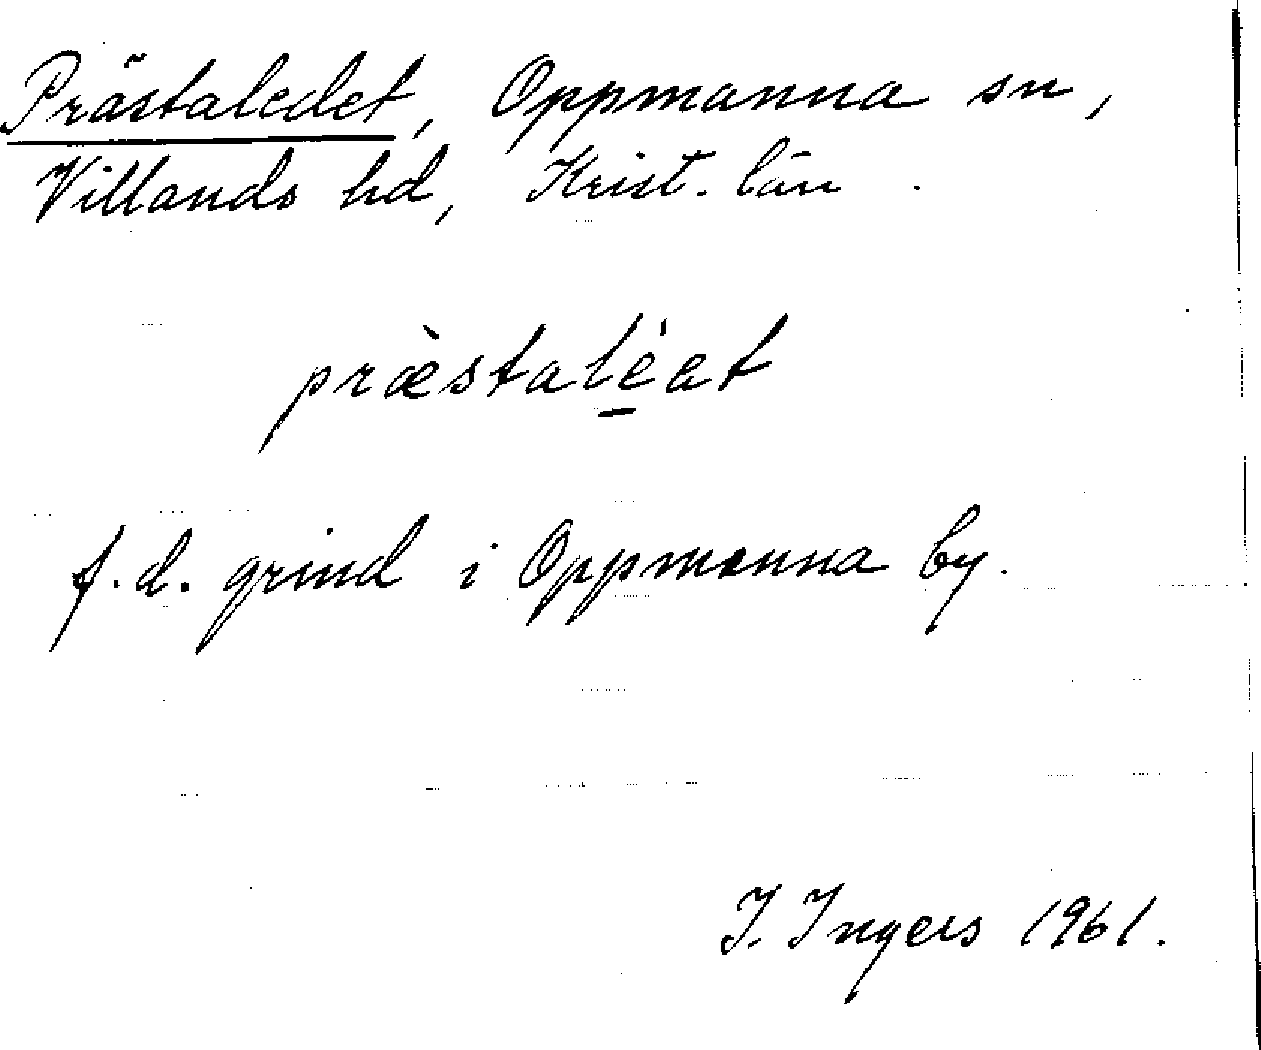 Prästaledet, Oppmanna sn,
Villands hd, Krist. län.
præ̀stalėat
f.d. grind i Oppmanna by.
I. Ingers 1961.